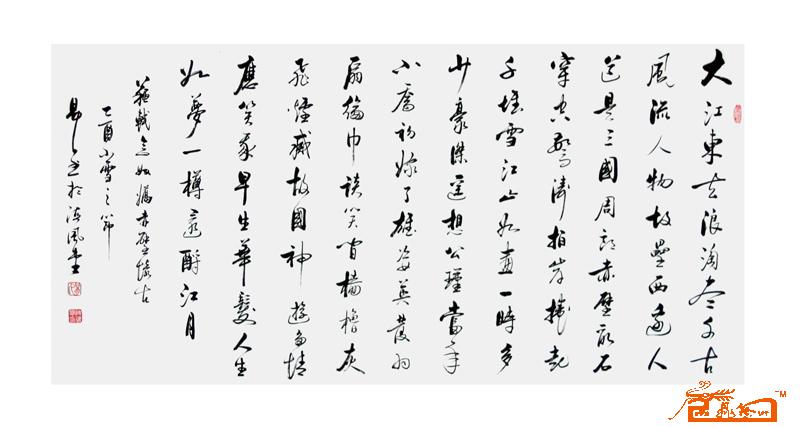 大江東去浪淘盡千古
風流人物故壘西邊人
道是三國周郎赤壁亂石
穿空驚濤拍岸捲起
千堆雪江山如畫一時多
少豪傑遥想公瑾當年
小喬初嫁了雄姿英發羽
扇綸巾談笑間檣櫓灰
飛煙滅故國神遊多情
應笑我早生華髮人生
如夢一樽還酹江月
蘇軾念奴嬌赤壁懷古
乙酉小雪之節
於 風堂